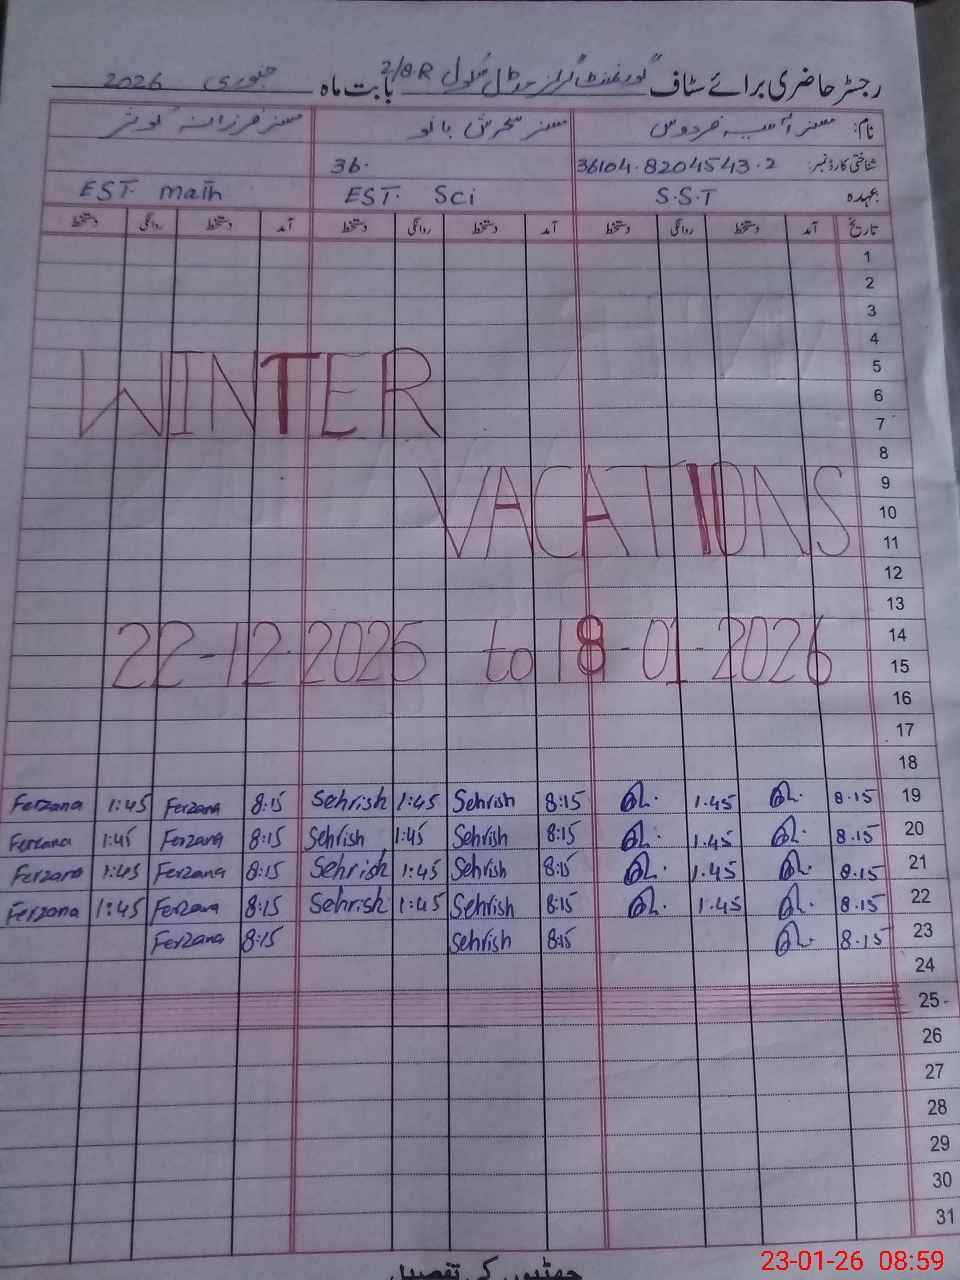 رجسٹر حاضری برائے سٹاف گورنمنٹ گرلز ماڈل سکول 2/8.R بابت ماہ جنوری 2026
نام: مسز آسیہ فردوس مسز سحرش بانو مسز فرزانہ کوثر
شناختی کارڈ نمبر: 36104-8204543-2 36-
عہدہ: S.S.T EST. Sci EST. math
تاریخ آمد دستخط روانگی دستخط آمد دستخط روانگی دستخط آمد دستخط روانگی دستخط
1
2
3
4
5
6
7
WINTER
8
9
10
11
VACATIONS
12
13
14
15
22-12-2025 to 18-01-2026
16
17
18
19 8.15 1.45 8:15 Sehrish 1:45 Sehrish 8:15 Ferzana 1:45 Ferzana
20 8.15 1.45 8:15 Sehrish 1:45 Sehrish 8:15 Ferzana 1:45 Ferzana
21 8.15 1.45 8:15 Sehrish 1:45 Sehrish 8:15 Ferzana 1:45 Ferzana
22 8.15 1.45 8:15 Sehrish 1:45 Sehrish 8:15 Ferzana 1:45 Ferzana
23 8.15 8:15 Sehrish 8:15 Ferzana
24
25
26
27
28
29
30
31
چھٹیوں کی تفصیل
23-01-26 08:59